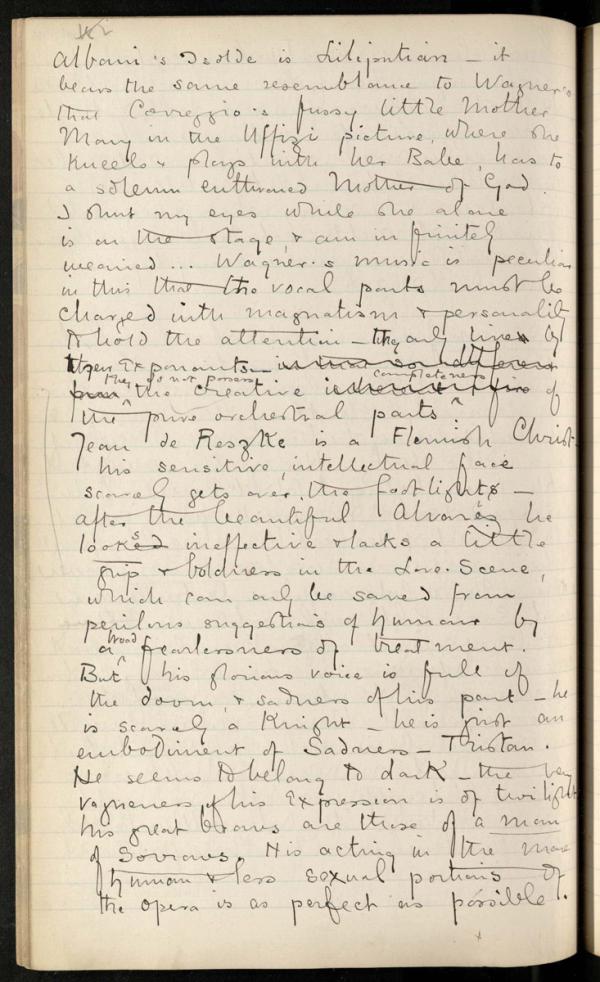 Albani's Isolde is Liliputian – it
bears the same resemblance to Wagner's
that Correggio's fussy little Mother
Mary in the Uffizi picture, where she
kneels & plays with her Babe, has to
a solemn enthroned Mother of God.
I shut my eyes while she alone
is on the stage, & am infinitely
wearied... Wagner's music is peculiar
in this that the vocal parts must be
charged with magnatism & personality
to hold the attention – they only live by
their Exponants –
they do not possess the creative completeness of
the pure orchestral parts.
Jean de Reszke is a Flemish Christ –
his sensitive, intellectual face
scarcely gets over the footlights –
after the beautiful Alvarez he
looks ineffective & lacks a little
grip & boldness in the Love-Scene,
which can only be saved from
perilous suggestions of humour by
a broad fearlessness of treatment.
But his glorious voice is full of
the doom & sadness of his part – he
is scarcely a Knight – he is just an
embodiment of Sadness – Tristan.
He seems to belong to dark – the very
vagueness of his Expression is of twilight
his great brows are those of a man
of Sorrows. His acting in the more
human & less sexual portions of
the opera is as perfect as possible.